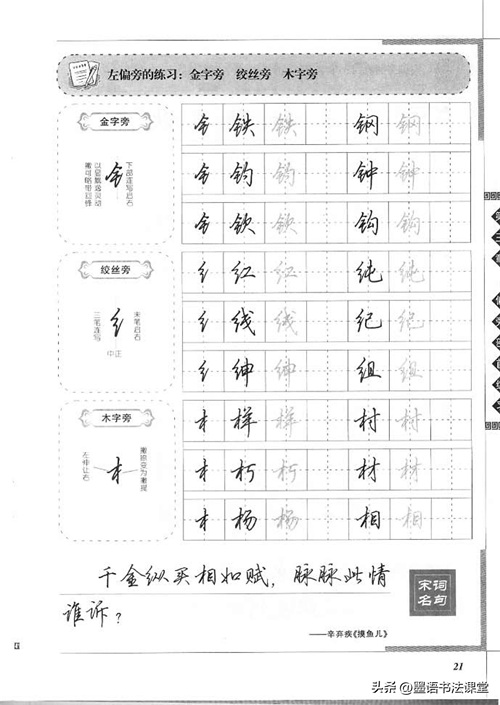 左偏旁的练习：金字旁 绞丝旁 木字旁
金字旁
下部连写启右
以竖取逸灵动
撇可略带回锋
钅 铁 铁 钢 钢
钅 钧 钧 钟 钟
钅 钦 钦 钩 钩
绞丝旁
末笔启右
三笔连写
中正
纟 红 红 纯 纯
纟 线 线 纪 纪
纟 绅 绅 组 组
木字旁
撇捺变为撇提
左伸让右
木 样 样 村 村
木 朽 朽 材 材
木 杨 杨 相 相
千金纵买相如赋，脉脉此情
谁诉？
宋词
名句
——辛弃疾《摸鱼儿》
21
头条 @墨语书法课堂